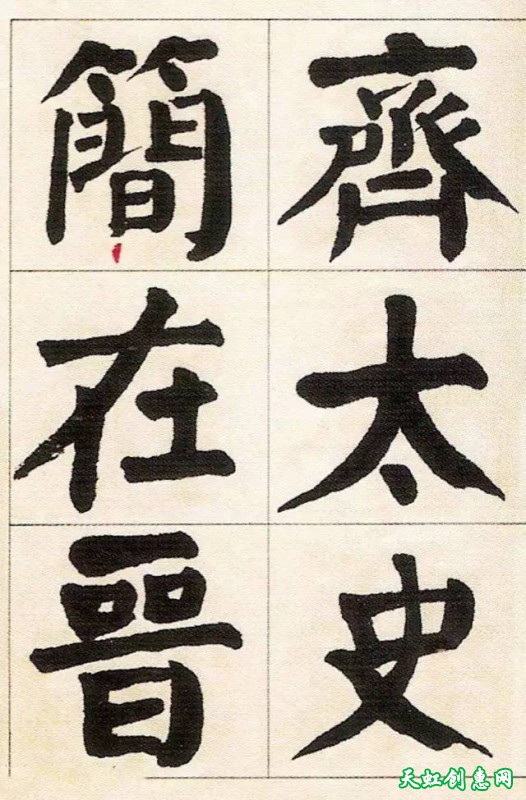 齊太史
簡在晉
天虹创意网